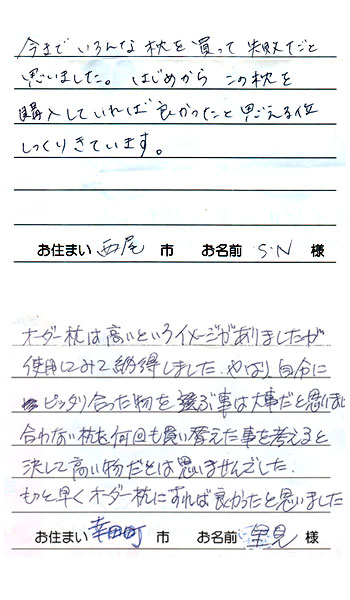 今までいろんな枕を買って失敗だと
思いました。はじめからこの枕を
購入していれば良かったと思える位
しっくりきています。
お住まい 西尾 市 お名前 S・N 様
オーダー枕は高いというイメージがありましたが
使用してみて納得しました。やはり自分に
ピッタリ合った物を選ぶ事は大事だと思いました
合わない枕を何回も買い替えた事を考えると
決して高い物だとは思いませんでした。
もっと早くオーダー枕にすれば良かったと思いました
お住まい 幸田町 市 お名前 里見 様